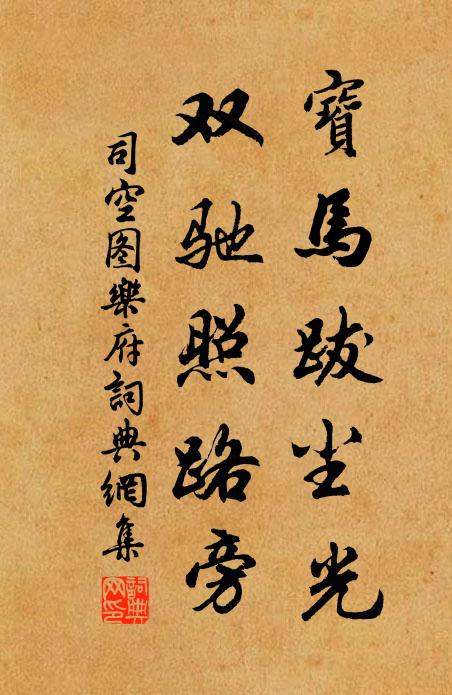 寶馬跋尘光
双驰照路旁
司空图樂府詞典網集
詞典网印